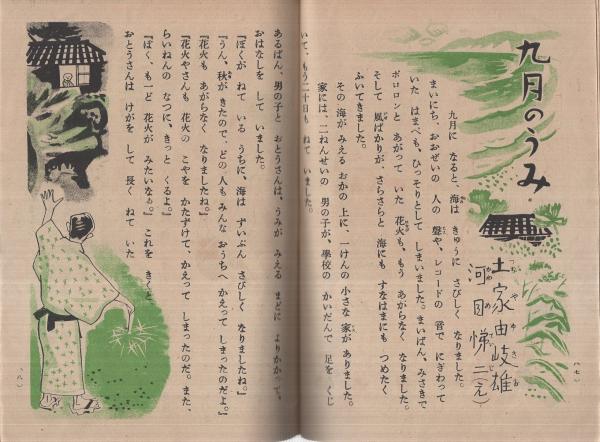 九月のうみ
土家由岐雄
つちやゆきお
河目悌二(え)
かわめていじ
九月に なると、海は きゅうに さびしく なりました。
まいにち、おおぜいの 人の 聲や、レコードの 音で にぎわって
いた はまべも、ひっそりとして しまいました。まいばん、みさきで
ポロロンと あがって いた 花火も、もう あがらなく なりました。
そして 風ばかりが、さらさらと 海にも すなはまにも つめたく
ふいてきました。
その 海が みえる おかの 上に、一けんの 小さな 家が ありました。
家には、二ねんせいの 男の子が、學校の かいだんで 足を くじ
(七)
いて、もう 二十日も ねて いました。
あるばん、男の子と おとうさんは、うみが みえる まどに よりかかって、
おはなしを して いました。
『ぼくが ねて いる うちに、海は ずいぶん さびしく なりましたね。』
『うん、秋が きたので、どの人も みんな おうちへ かえって しまったのだよ。』
『花火も あがらなく なりましたね。』
『花火やさんも 花火の こやを かたずけて、かえって しまったのだ。また、
らいねんの なつに、きっと くるよ。』
『ぼく、も一ど 花火が みたいなあ。』これを きくと、
おとうさんは けがを して 長く ねて いた
(八)